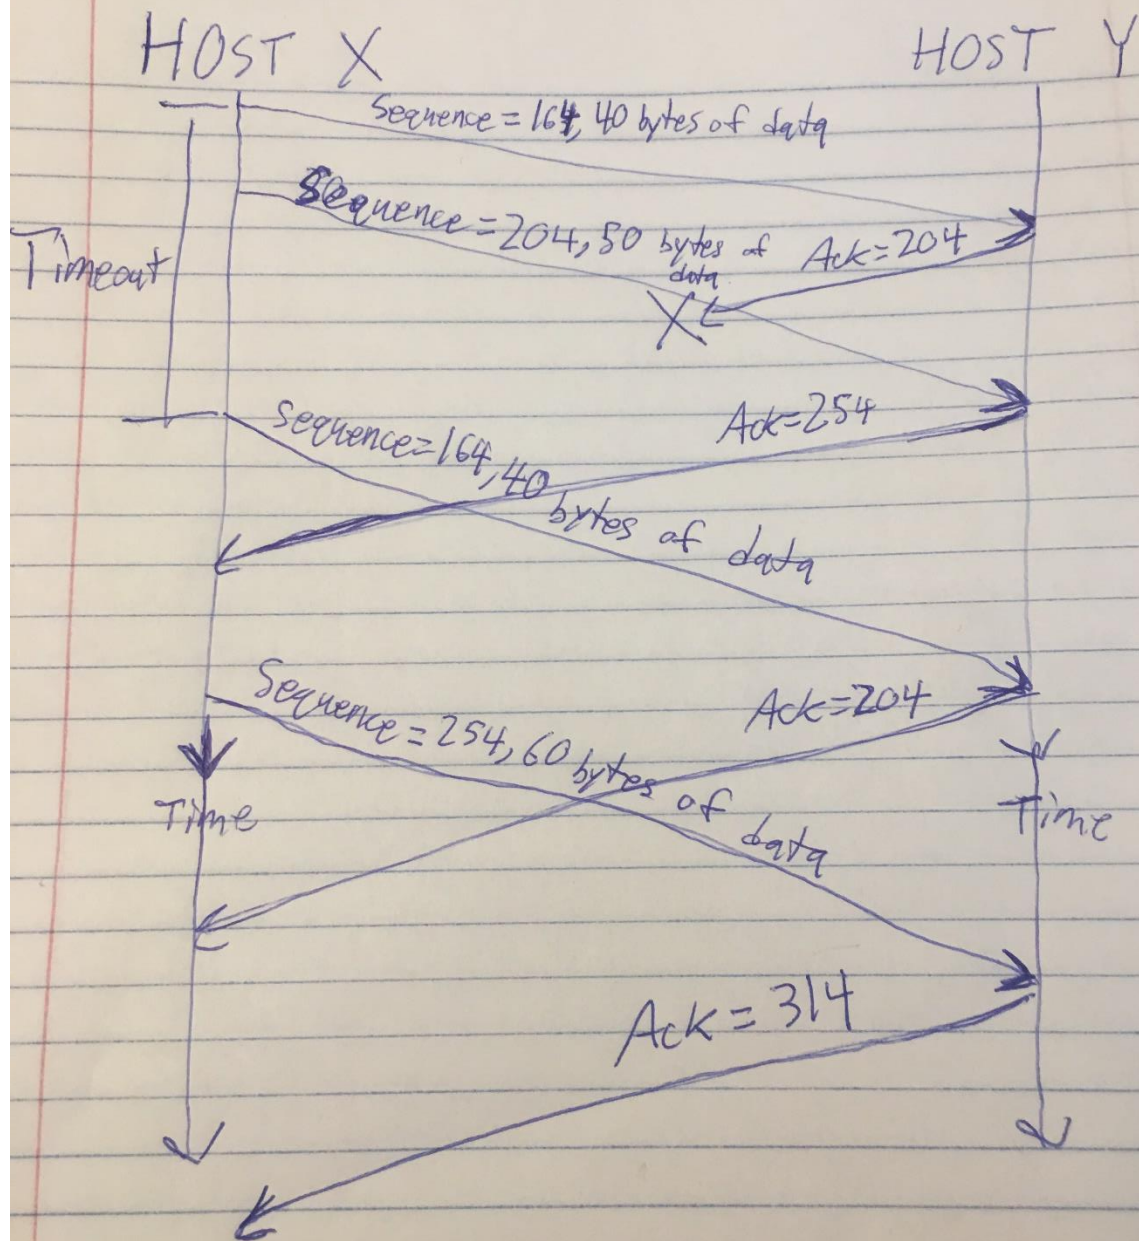 HOST X
HOST Y
Sequence = 164, 40 bytes of data
Sequence = 204, 50 bytes of
data
Ack=204
Timeout
X
Ack=254
Sequence=164, 40
bytes of data
Ack=204
Sequence = 254, 60 bytes of
data
Time
Time
Ack = 314